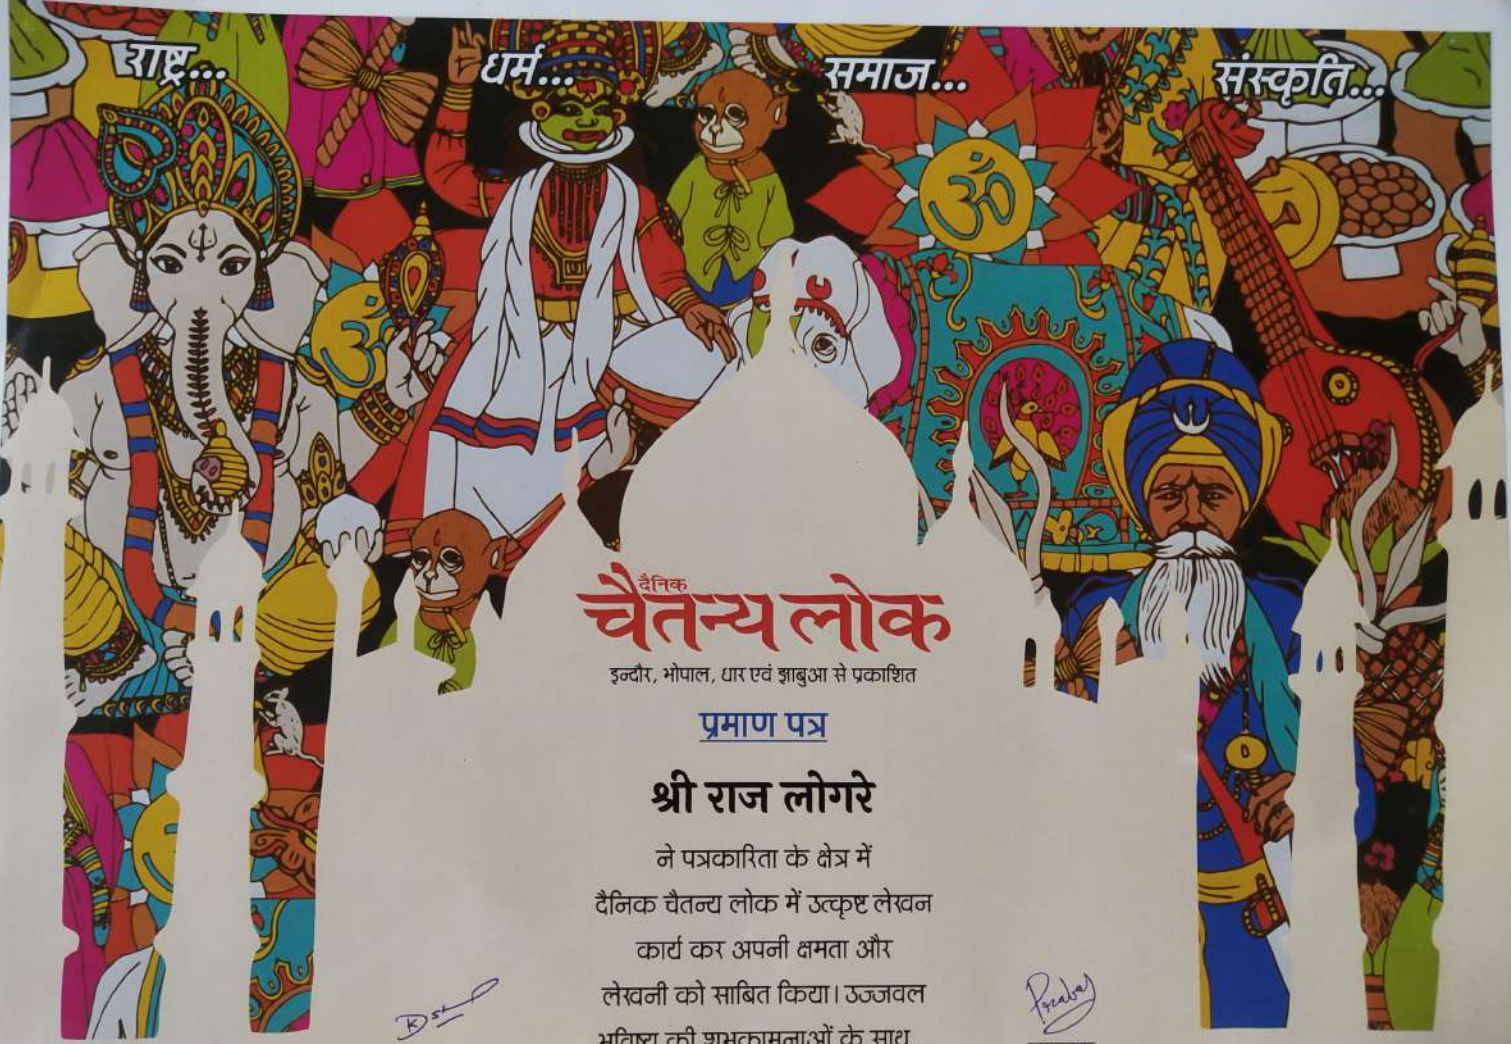 राष्ट्र...
धर्म...
समाज...
संस्कृति...
दैनिक
चैतन्य लोक
इन्दौर, भोपाल, धार एवं झाबुआ से प्रकाशित
प्रमाण पत्र
श्री राज लोगरे
ने पत्रकारिता के क्षेत्र में
दैनिक चैतन्य लोक में उत्कृष्ट लेखन
कार्य कर अपनी क्षमता और
लेखनी को साबित किया। उज्जवल
भविष्य की शुभकामनाओं के साथ